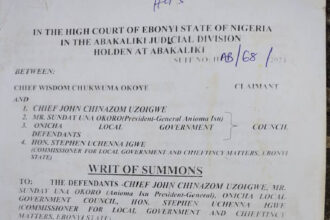 IN THE HIGH COURT OF EBONYI STATE OF NIGERIA
IN THE ABAKALIKI JUDICIAL DIVISION
HOLDEN AT ABAKALIKI
SUIT NO: HAB/68/2021
BETWEEN:
CHIEF WISDOM CHUKWUMA OKOYE CLAIMANT
AND
1. CHIEF JOHN CHINAZOM UZOIGWE
2. MR. SUNDAY UNA OKORO(President-General Anioma Isu)
3. ONICHA LOCAL GOVERNMENT COUNCIL
DEFENDANTS
4. HON. STEPHEN UCHENNA IGWE
(COMMISSIONER FOR LOCAL GOVERNMENT AND CHIEFTINCY MATTERS, EBONYI
STATE)
WRIT OF SUMMONS
TO: THE DEFENDANTS -CHIEF JOHN CHINAZOM UZOIGWE, MR.
SUNDAY UNA OKORO (Aniema Isu President-General), ONICHA LOCAL
GOVERNMENT COUNCIL, HON. STEPHEN UCHENNA
(COMMISSIONER FOR LOCAL GOVERNMENT AND CHIEFTINCY
MATTERS, EBONYI STATE)